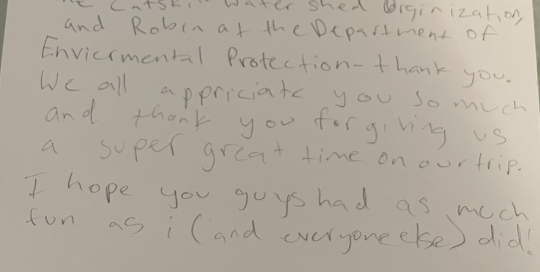 Catskill Water shed Orginization,
and Robin at the Department of
Enviermental Protection - thank you.
We all appriciate you so much
and thank you for giving us
a super great time on our trip.
I hope you guys had as much
fun as i (and everyone else) did!